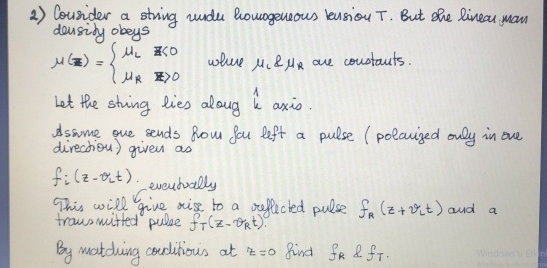 2) Consider a string under homogeneous tension T. But the linear mass
density obeys
μ(z) = { μL z<0
μR z>0 where μL & μR are constants.
Let the string lies along k̂ axis.
Assume one sends from far left a pulse (polarized only in one
direction) given as
fi(z-vLt).
eventually
This will give rise to a reflected pulse fR(z+vLt) and a
transmitted pulse fT(z-vRt).
By matching conditions at z=0 find fR & fT.